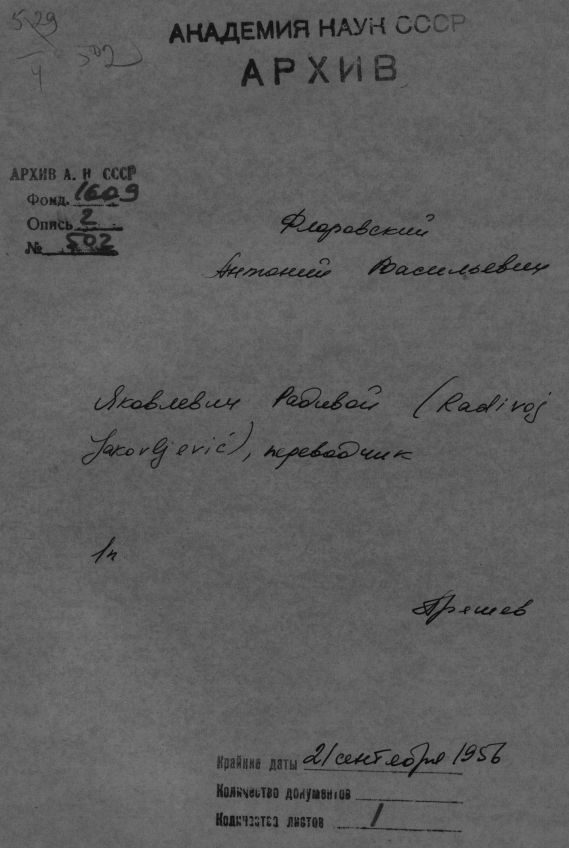 529
4 502
АКАДЕМИЯ НАУК СССР
АРХИВ
АРХИВ А. Н СССР
Фонд. 1609
Опись 2
№ 502
Флоровский
Антоний Васильевич
Яковлевич Радивой (Radivoj
Jakovljević), переводчик
1п.
Пряшев
Крайние даты 21 сентября 1956
Количество документов
Количество листов 1